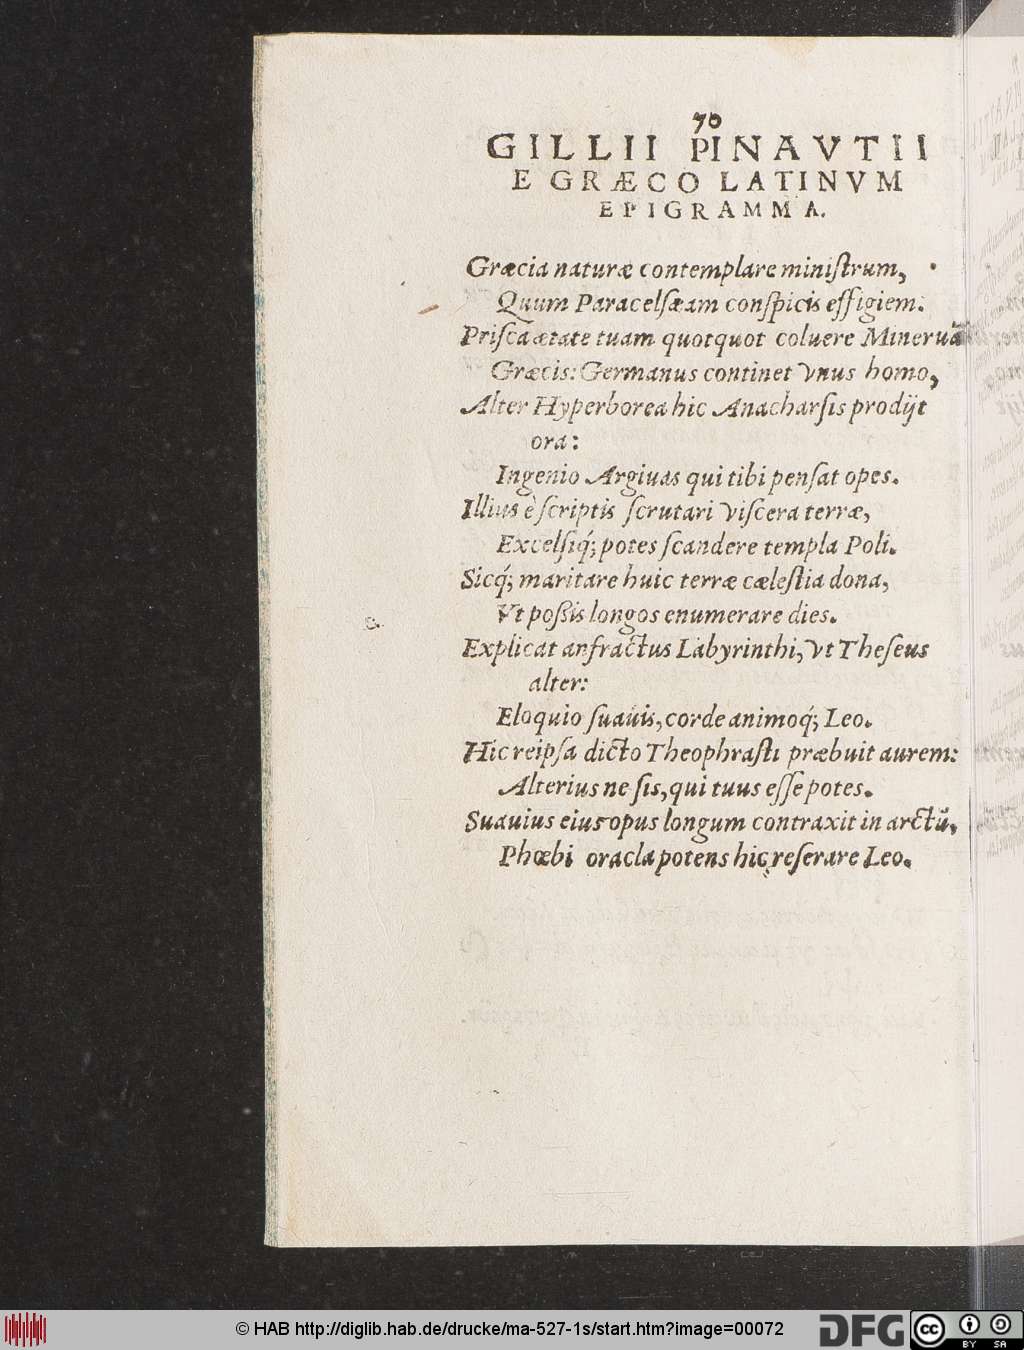 70
GILLII PINAVTII
E GRÆCO LATINVM
EPIGRAMMA.
Græcia naturæ contemplare miniſtrum,
Quum Paracelſæam conſpicis effigiem.
Priſca ætate tuam quotquot coluere Mineruã
Græcis: Germanus continet vnus homo,
Alter Hyperborea hic Anacharſis prodijt
ora:
Ingenio Argiuas qui tibi penſat opes.
Illius è ſcriptis ſcrutari viſcera terræ,
Excelſiq́; potes ſcandere templa Poli.
Sicq́; maritare huic terræ cæleſtia dona,
Vt poßis longos enumerare dies.
Explicat anfractus Labyrinthi, vt Theſeus
alter:
Eloquio ſuauis, corde animoq́; Leo.
Hic reipſa dicto Theophraſti præbuit aurem:
Alterius ne ſis, qui tuus eſſe potes.
Suauius eius opus longum contraxit in arctũ,
Phœbi oracla potens hic reſerare Leo.
© HAB http://diglib.hab.de/drucke/ma-527-1s/start.htm?image=00072
DFG
cc
BY SA